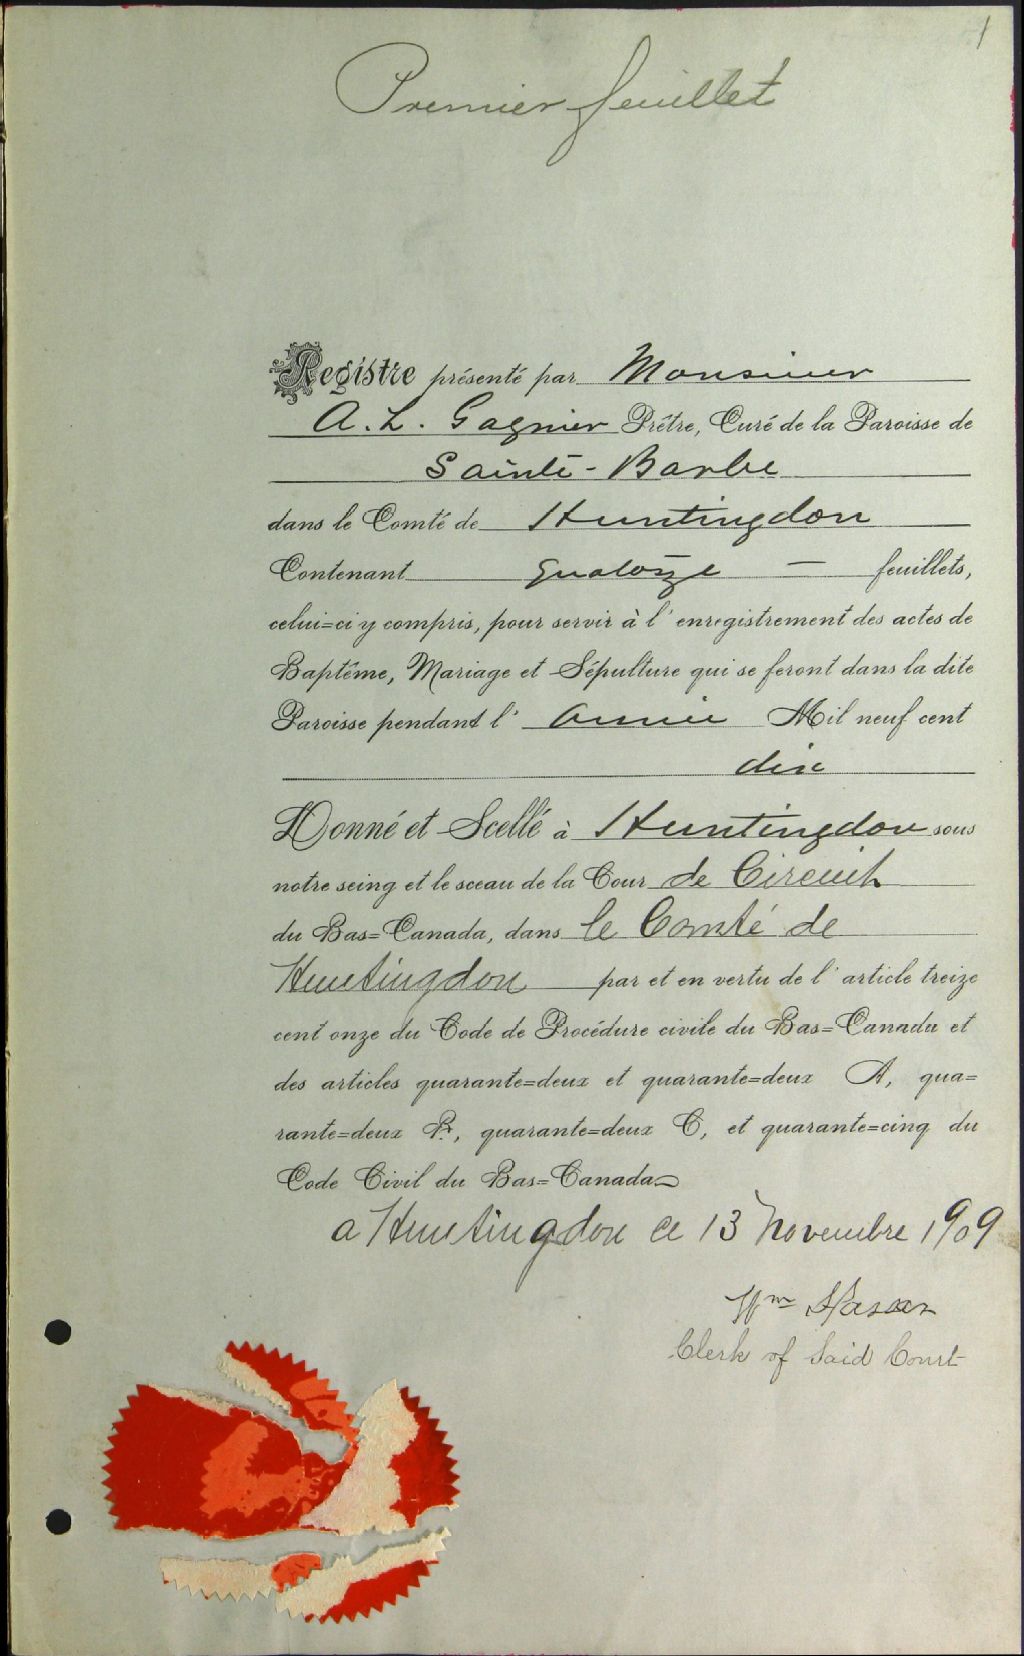 1
Premier feuillet
Registre présenté par Monsieur
A. L. Gagnier Prêtre, Curé de la Paroisse de
Sainte-Barbe
dans le Comté de Huntingdon
Contenant quatorze — feuillets,
celui=ci y compris, pour servir à l'enregistrement des actes de
Baptême, Mariage et Sépulture qui se feront dans la dite
Paroisse pendant l'année Mil neuf cent
dix
Donné et Scellé à Huntingdon sous
notre seing et le sceau de la Cour de Circuit
du Bas=Canada, dans le Comté de
Huntingdon par et en vertu de l'article treize
cent onze du Code de Procédure civile du Bas=Canada et
des articles quarante=deux et quarante=deux A, qua=
rante=deux B, quarante=deux C, et quarante=cinq du
Code Civil du Bas=Canada
a Huntingdon ce 13 Novembre 1909
Wm
Clerk of Said Court